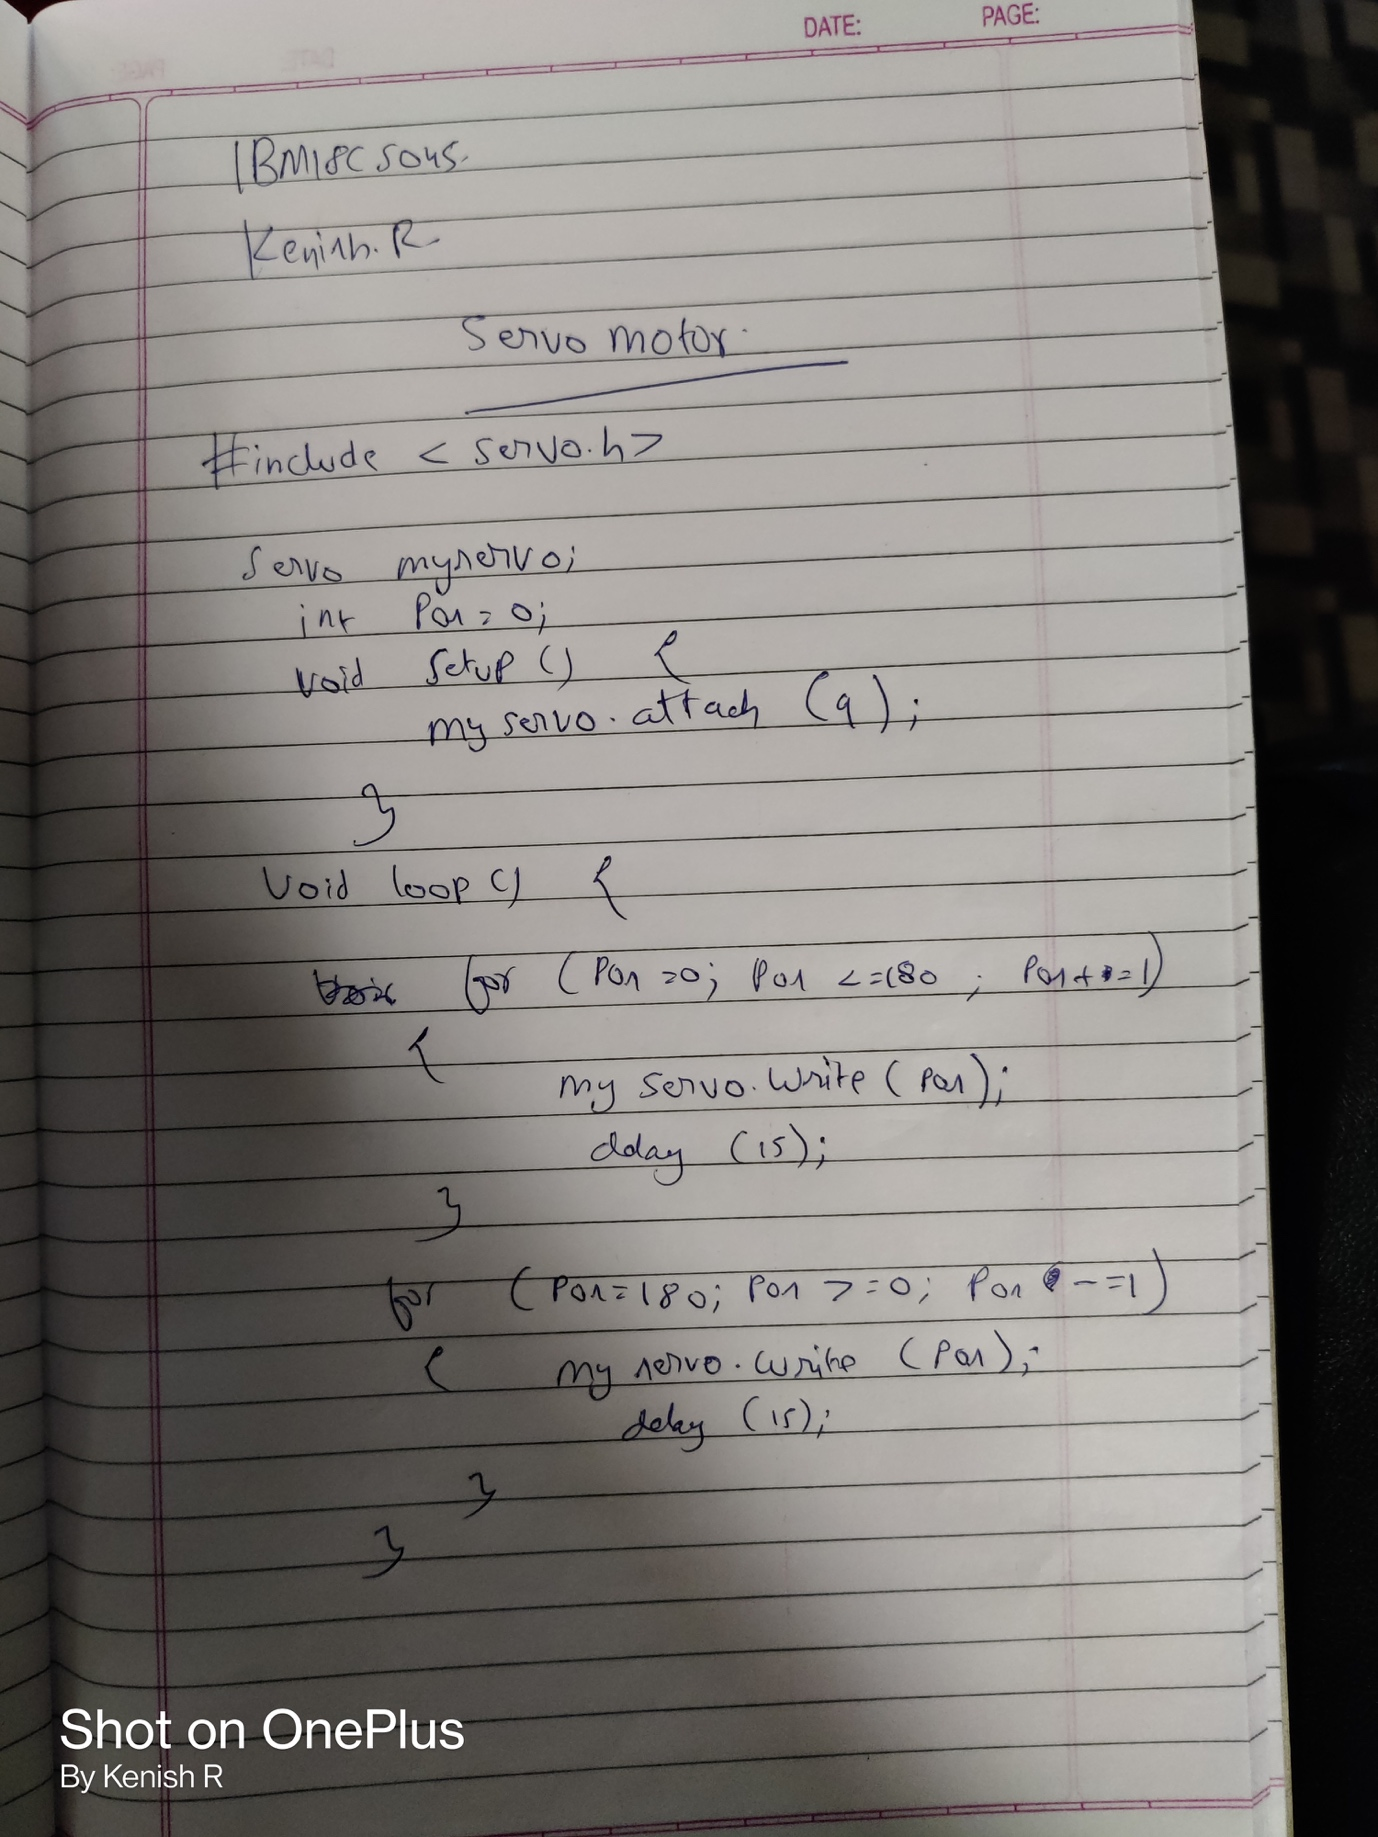 DATE: PAGE:
1BM18CS045.
Kenish. R
Servo motor.
#include < servo.h>
Servo myservo;
int Pos = 0;
void setup () {
my servo. attach (9);
}
Void loop () {
for (Pos =0; Pos <=180 ; Pos+=1)
{
my servo. Write ( Pos);
delay (15);
}
for (Pos=180; Pos >=0; Pos -=1)
{ my servo. write (Pos);
delay (15);
}
}
Shot on OnePlus
By Kenish R